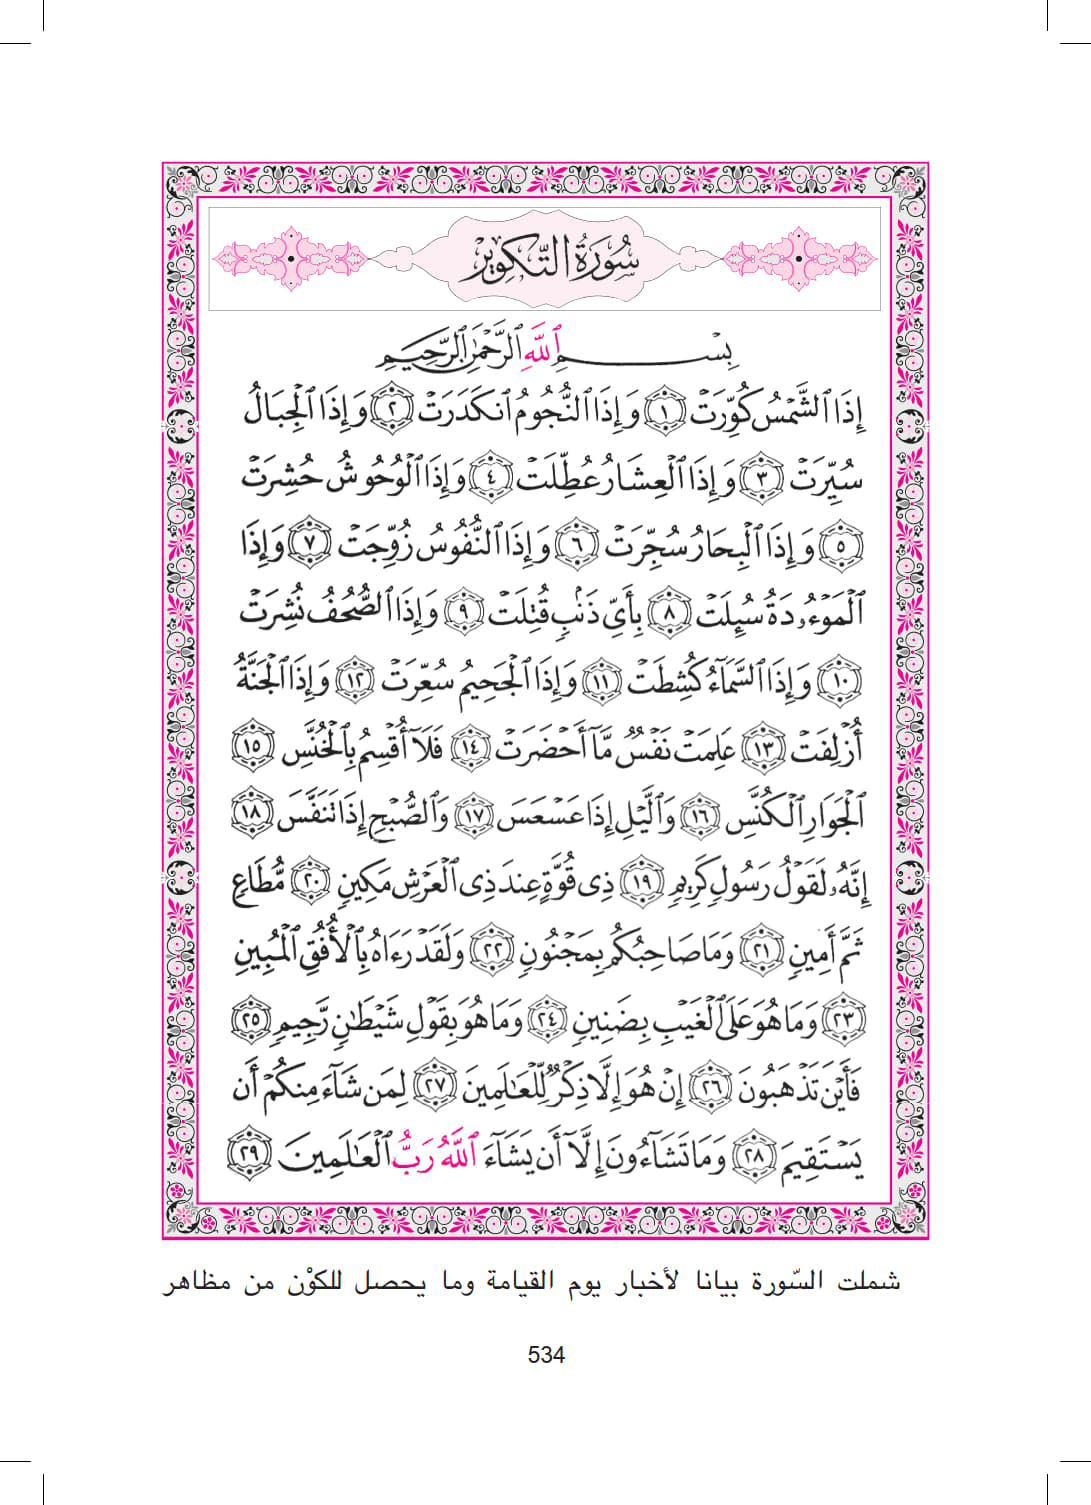 سُورَةُ التَّكْوِيرِ
بِسْمِ ٱللَّهِ ٱلرَّحْمَٰنِ ٱلرَّحِيمِ
إِذَا ٱلشَّمْسُ كُوِّرَتْ ١ وَإِذَا ٱلنُّجُومُ ٱنكَدَرَتْ ٢ وَإِذَا ٱلْجِبَالُ
سُيِّرَتْ ٣ وَإِذَا ٱلْعِشَارُ عُطِّلَتْ ٤ وَإِذَا ٱلْوُحُوشُ حُشِرَتْ
٥ وَإِذَا ٱلْبِحَارُ سُجِّرَتْ ٦ وَإِذَا ٱلنُّفُوسُ زُوِّجَتْ ٧ وَإِذَا
ٱلْمَوْءُۥدَةُ سُئِلَتْ ٨ بِأَىِّ ذَنۢبٍ قُتِلَتْ ٩ وَإِذَا ٱلصُّحُفُ نُشِرَتْ
١٠ وَإِذَا ٱلسَّمَآءُ كُشِطَتْ ١١ وَإِذَا ٱلْجَحِيمُ سُعِّرَتْ ١٢ وَإِذَا ٱلْجَنَّةُ
أُزْلِفَتْ ١٣ عَلِمَتْ نَفْسٌ مَّآ أَحْضَرَتْ ١٤ فَلَآ أُقْسِمُ بِٱلْخُنَّسِ ١٥
ٱلْجَوَارِ ٱلْكُنَّسِ ١٦ وَٱلَّيْلِ إِذَا عَسْعَسَ ١٧ وَٱلصُّبْحِ إِذَا تَنَفَّسَ ١٨
إِنَّهُۥ لَقَوْلُ رَسُولٍ كَرِيمٍ ١٩ ذِى قُوَّةٍ عِندَ ذِى ٱلْعَرْشِ مَكِينٍ ٢٠ مُّطَاعٍ
ثَمَّ أَمِينٍ ٢١ وَمَا صَاحِبُكُم بِمَجْنُونٍ ٢٢ وَلَقَدْ رَءَاهُ بِٱلْأُفُقِ ٱلْمُبِينِ
٢٣ وَمَا هُوَ عَلَى ٱلْغَيْبِ بِضَنِينٍ ٢٤ وَمَا هُوَ بِقَوْلِ شَيْطَٰنٍ رَّجِيمٍ ٢٥
فَأَيْنَ تَذْهَبُونَ ٢٦ إِنْ هُوَ إِلَّا ذِكْرٌ لِّلْعَٰلَمِينَ ٢٧ لِمَن شَآءَ مِنكُمْ أَن
يَسْتَقِيمَ ٢٨ وَمَا تَشَآءُونَ إِلَّآ أَن يَشَآءَ ٱللَّهُ رَبُّ ٱلْعَٰلَمِينَ ٢٩
شملت السّورة بيانا لأخبار يوم القيامة وما يحصل للكوْن من مظاهر
534